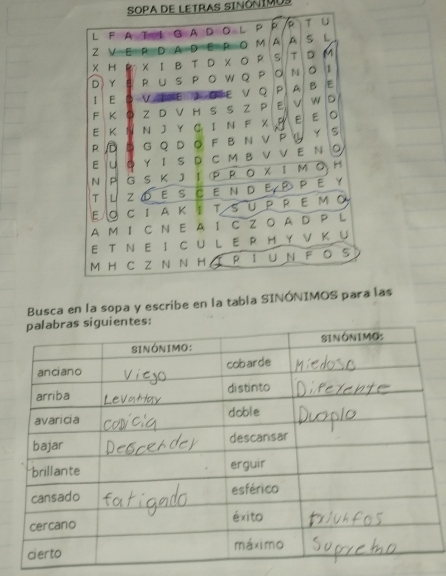 SOPA DE LETRAS SINÓNIMOS
L F A T I G A D O L P P R T U
Z V E R D A D E R O M A A S L
D Y E R U S P O W Q P O N O I
F K O Z D V H S S Z P E V W D
E K N N J Y C I N F X P E E O
E U O Y I S D C M B V V E N O
N P G S K J I P R O X I M O H
T L Z D E S C E N D E R P E Y
E O C I A K I T S U P R E M O
A M I C N E A I C Z O A D P L
E T N E I C U L E R H Y V K U
M H C Z N N H T R I U N F O S
Busca en la sopa y escribe en la tabla SINÓNIMOS para las
palabras siguientes:
SINÓNIMO: SINÓNIMO:
anciano Viejo cobarde Miedoso
arriba Levantar distinto Diferente
avaricia codicia doble Duplo
bajar Descender descansar
brillante erguir
cansado fatigado esférico
cercano éxito triunfos
cierto máximo Supremo